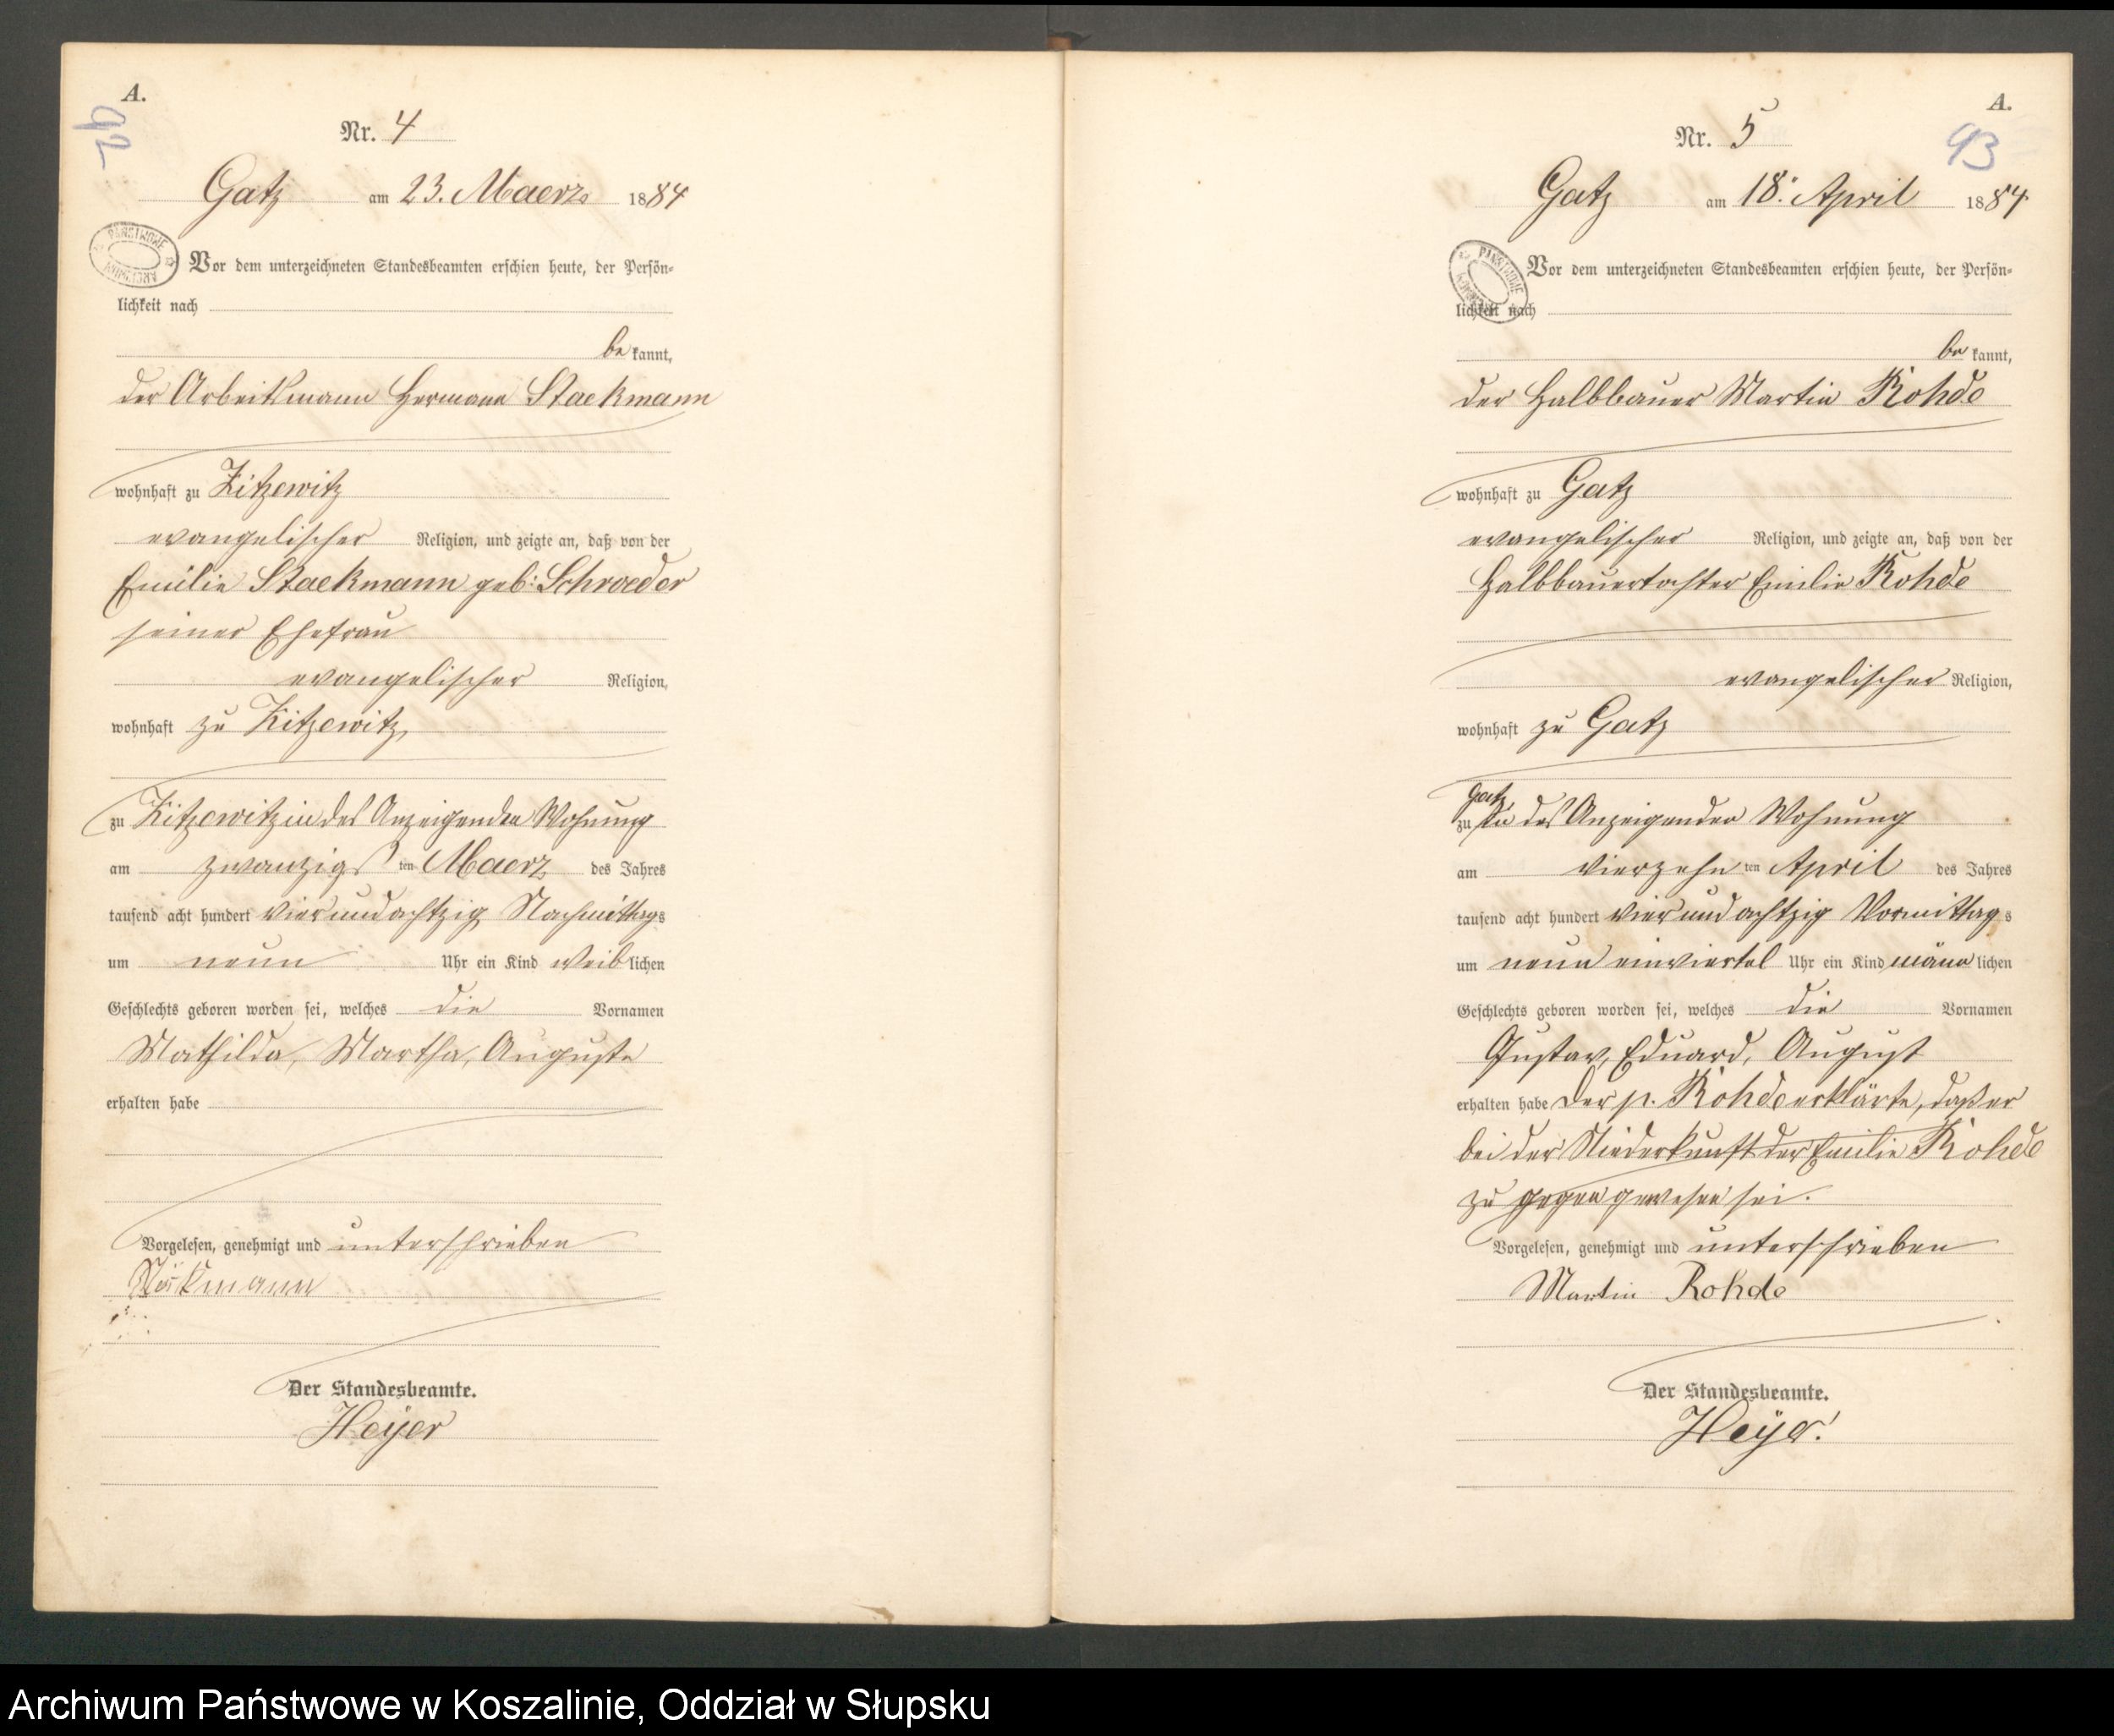 A.
92
Nr. 4
Gatz am 23. Maerz 1884
PAŃSTWOWE ARCHIWUM
Vor dem unterzeichneten Standesbeamten erschien heute, der Persön-
lichkeit nach
be kannt,
der Arbeitsmann Hermann Staekmann
wohnhaft zu Zitzewitz
evangelischer Religion, und zeigte an, daß von der
Emilie Staekmann geb: Schroeder
seiner Ehefrau
evangelischer Religion,
wohnhaft zu Zitzewitz,
zu Zitzewitz in des Anzeigenden Wohnung
am zwanzigsten Maerz des Jahres
tausend acht hundert vier und achtzig Nachmittags
um neun Uhr ein Kind weiblichen
Geschlechts geboren worden sei, welches die Vornamen
Mathilda, Martha, Auguste
erhalten habe
Vorgelesen, genehmigt und unterschrieben
Der Standesbeamte.
Heyer
A.
93
Nr. 5
Gatz am 18. April 1884
PAŃSTWOWE ARCHIWUM
Vor dem unterzeichneten Standesbeamten erschien heute, der Persön-
lichkeit nach
be kannt,
der Halbbauer Martin Rohde
wohnhaft zu Gatz
evangelischer Religion, und zeigte an, daß von der
Halbbauertochter Emilie Rohde
evangelischer Religion,
wohnhaft zu Gatz
Gatz,
zu in des Anzeigenden Wohnung
am vierzehnten April des Jahres
tausend acht hundert vier und achtzig Vormittags
um neun einviertel Uhr ein Kind männlichen
Geschlechts geboren worden sei, welches die Vornamen
Gustav, Eduard, August
erhalten habe Der p. Rohde erklärte, daß er
bei der Niederkunft der Emilie Rohde
zu gegen gewesen sei.
Vorgelesen, genehmigt und unterschrieben
Martin Rohde
Der Standesbeamte.
Heyer.
Archiwum Państwowe w Koszalinie, Oddział w Słupsku